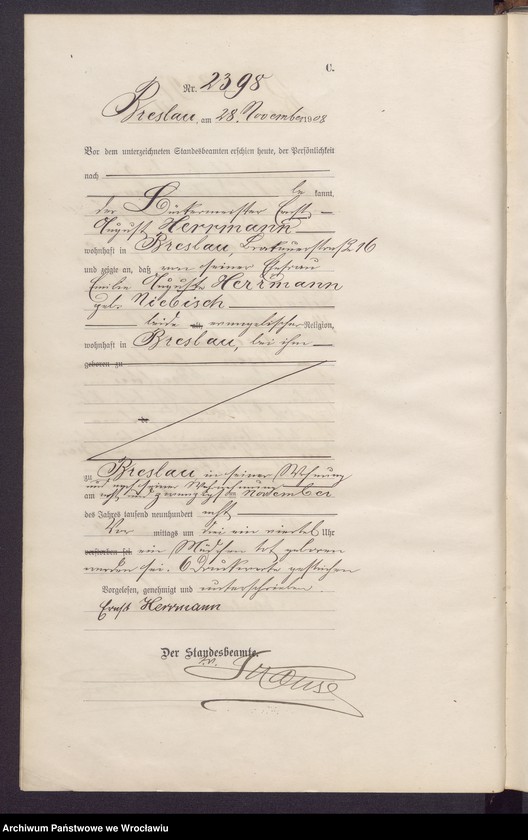 C.
Nr. 2398
Breslau, am 28. November 1908
Vor dem unterzeichneten Standesbeamten erschien heute, der Persönlichkeit
nach
be kannt,
der Bäckermeister Ernst
August Herrmann
wohnhaft in Breslau, 16
und zeigte an, daß von seiner Ehefrau
Emilie Auguste Herrmann
geb. Niebisch
beide alt, evangelischer Religion,
wohnhaft in Breslau, bei ihm
geboren zu
de
zu Breslau in seiner Wohnung
und nach seiner
am acht und zwanzigsten November
des Jahres tausend neunhundert acht
Vor mittags um drei ein viertel Uhr
verstorben sei ein Mädchen tot geboren
worden sei. 6 Druckworte gestrichen
Vorgelesen, genehmigt und unterschrieben
Ernst Herrmann
Der Standesbeamte.
I.V. Krause
Archiwum Państwowe we Wrocławiu